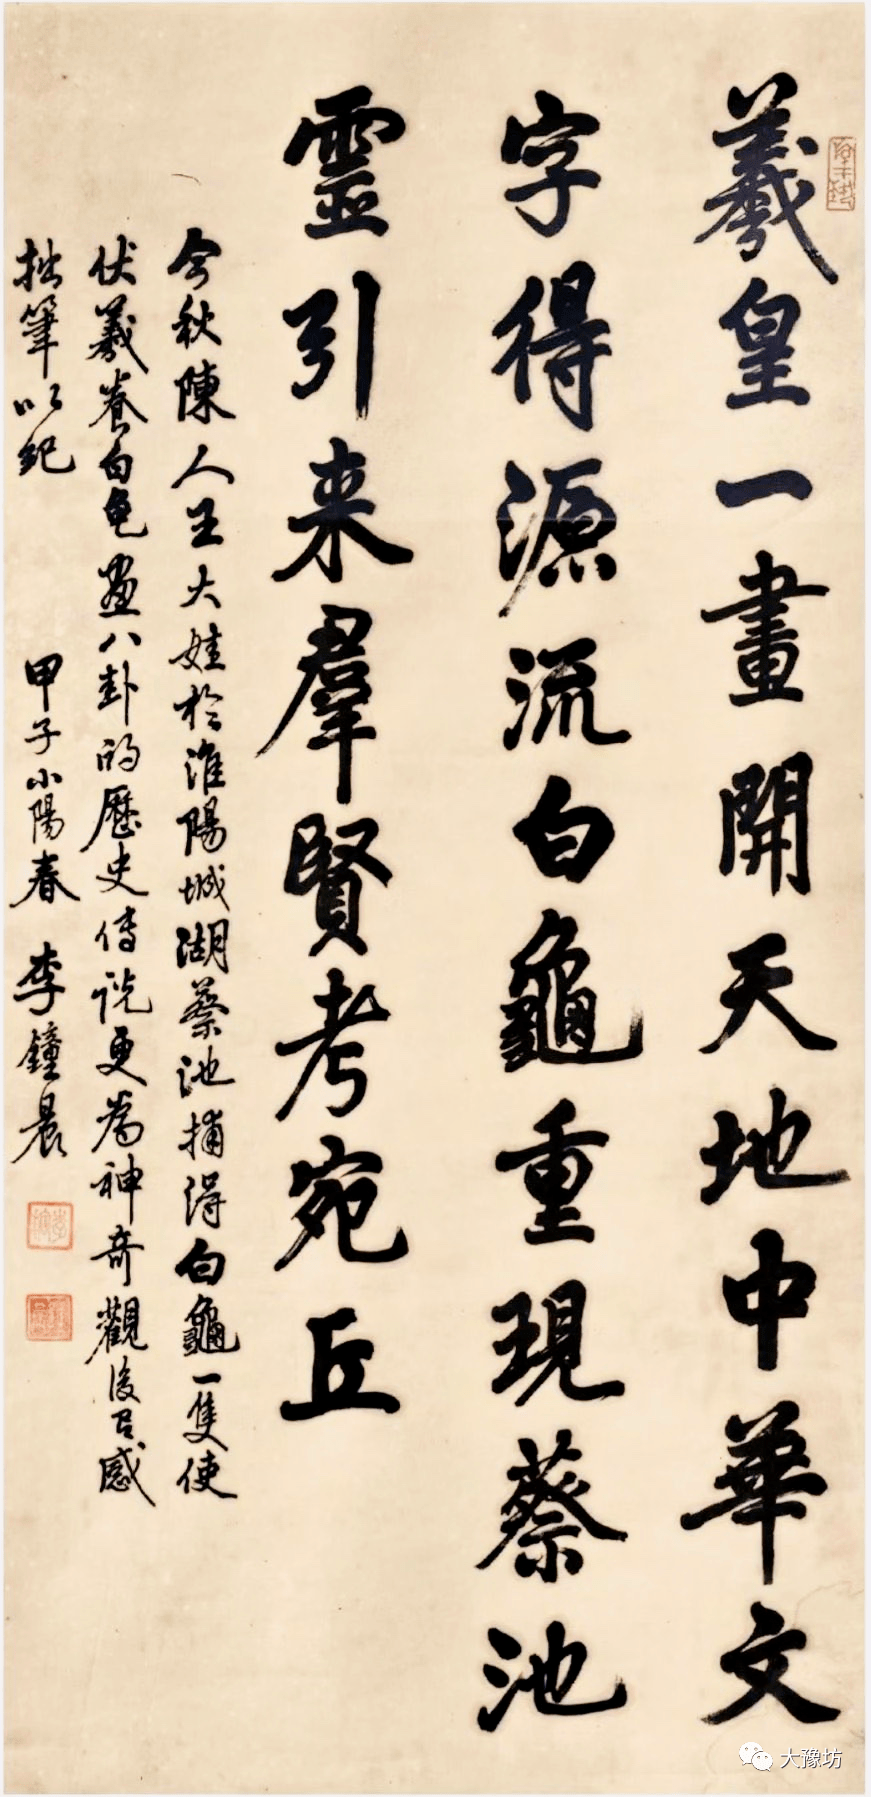 羲皇一畫開天地中華文
字得源流白龜重現蔡池
靈引来羣賢考宛丘
今秋陳人王大娃於淮陽城湖蔡池捕得白龜一隻使
伏羲養白龟畫八卦的歷史傳説更為神奇觀後有感
拙筆以紀
甲子小陽春 李鐘晨
大豫坊